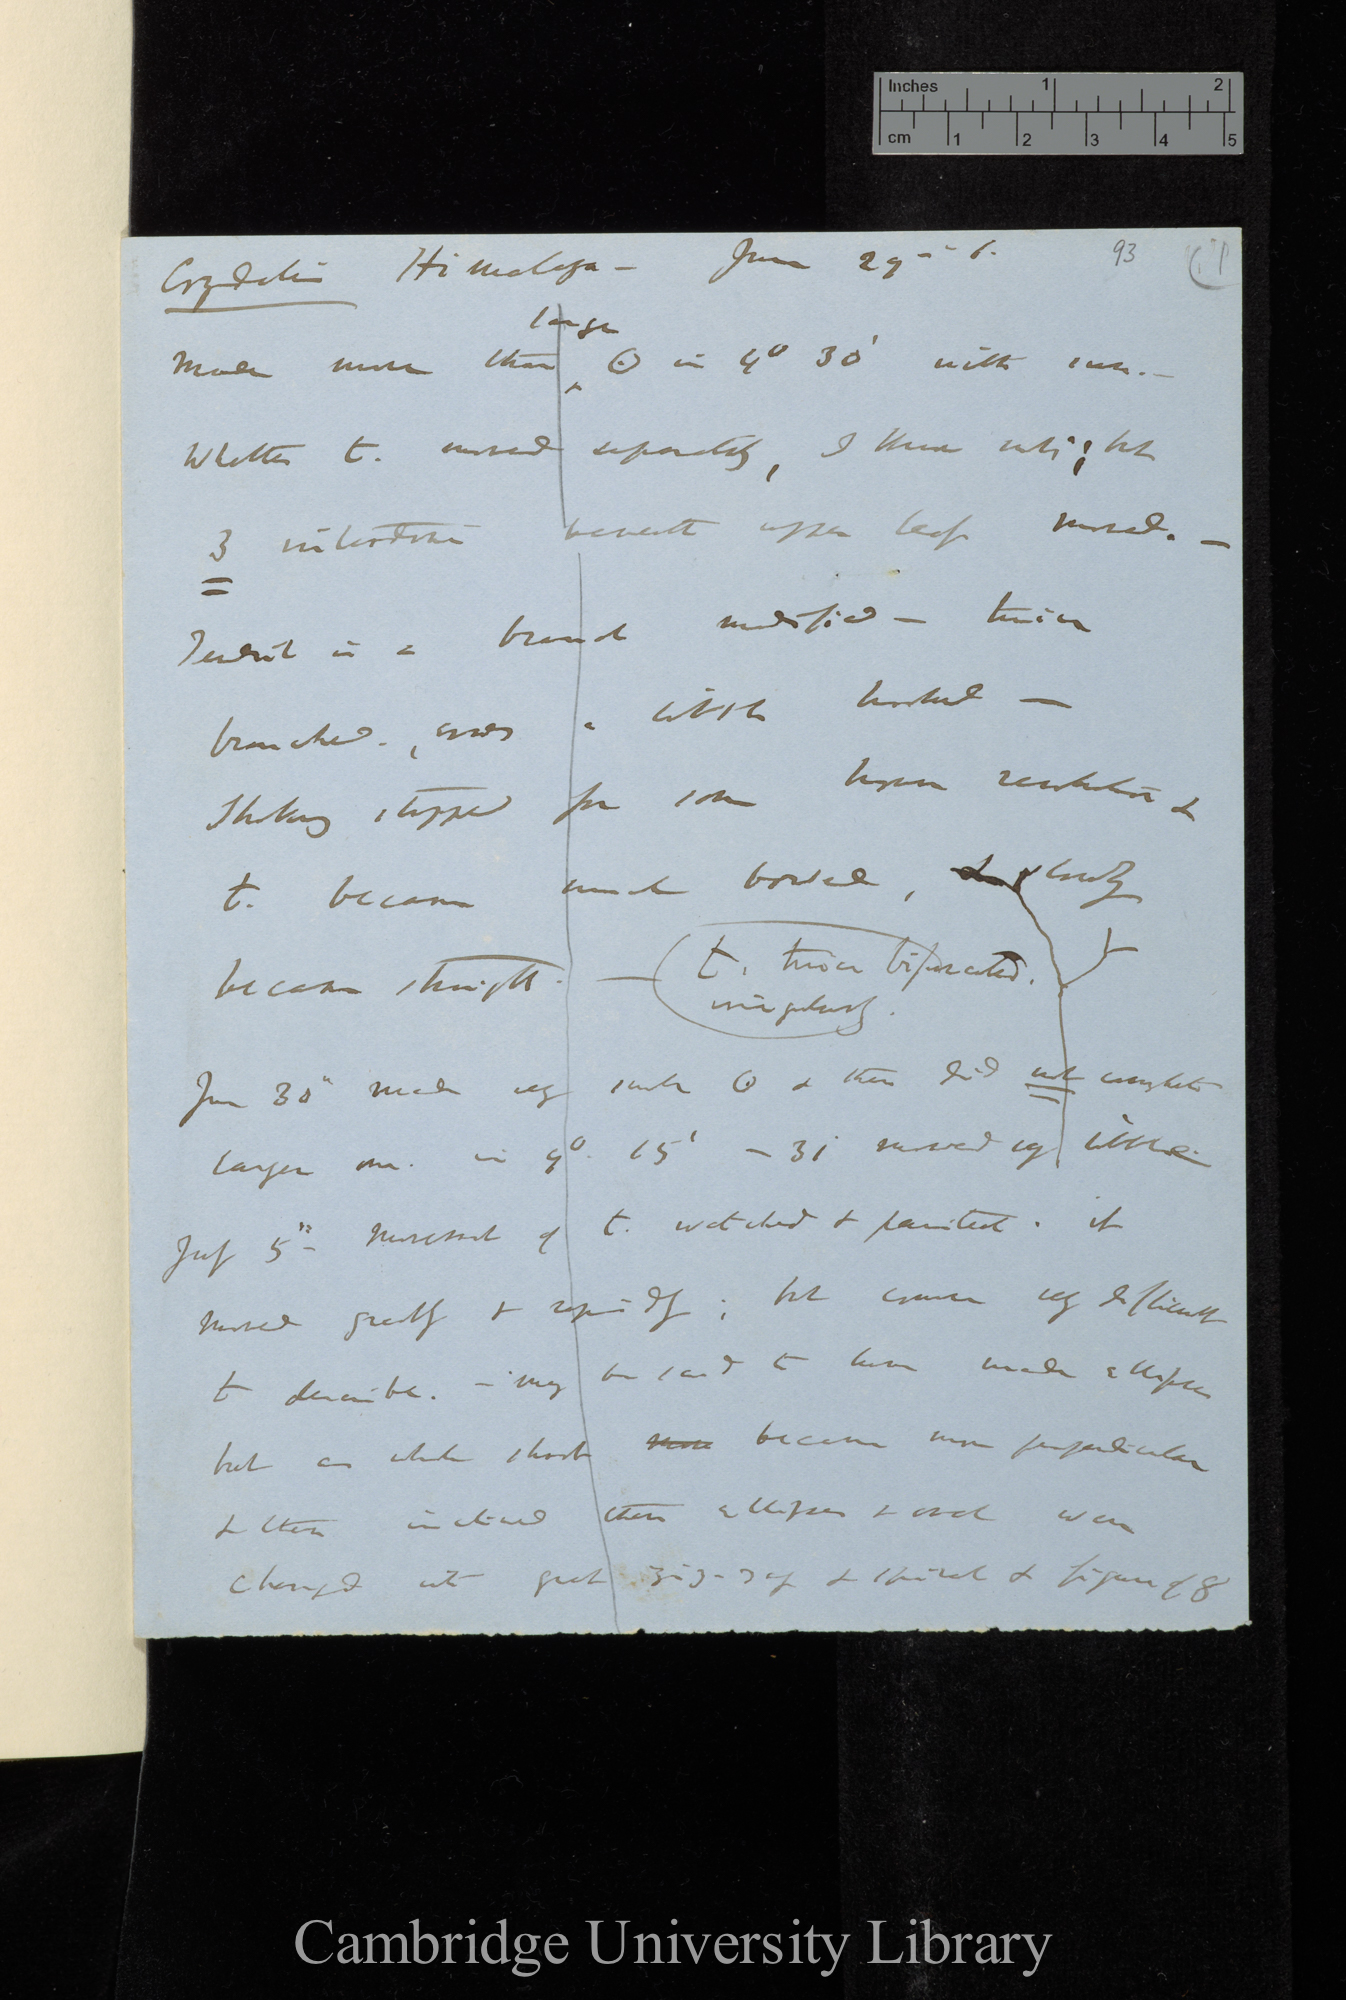 Inches 1 2
cm 1 2 3 4 5
93 (1)
Corydalis Himalaya — June 29th
large
Made more than ^ ʘ in 4° 30' with sun. —
Whether t. moved separately, I know not; but
3 internodes beneath upper leaf moved. —
Tendril is a branch modified — twice
branched, ends a little hooked —
Shaking stopped for some hours revolution &
t. became much bowed, slowly
became straight. — t. twice bifurcated
irregularly.
June 30th made very small ʘ & then did not complete
larger one. in 4° 15' — 31 moved very little
July 5th Movement of t. watched & painted. it
moved greatly & rapidly; but course very difficult
to describe. — may be said to have made ellipses
but as whole shoot became more perpendicular
& then inclined these ellipses & oval were
changed into great zig-zag & spiral & figure of 8
Cambridge University Library